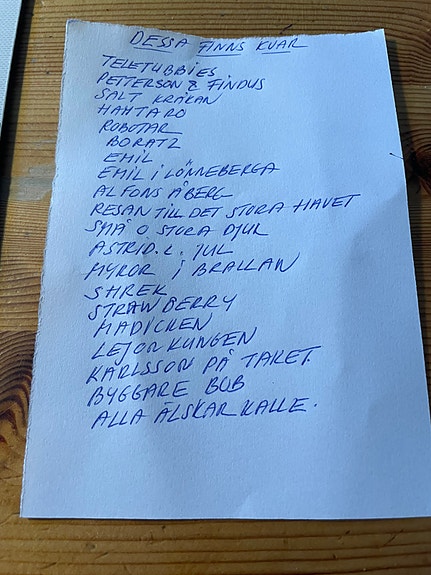 DESSA FINNS KVAR
TELETUBBIES
PETTERSON & FINDUS
SALT KRÅKAN
HAHTARO
ROBOTAR
BORATZ
EMIL
EMIL I LÖNNEBERGA
ALFONS ÅBERG
RESAN TILL DET STORA HAVET
SMÅ O STORA DJUR
ASTRID. L. JUL
MYROR I BRALLAN
SHREK
STRAWBERRY
MADICKEN
LEJONKUNGEN
KARLSSON PÅ TAKET.
BYGGARE BOB
ALLA ÄLSKAR KALLE.